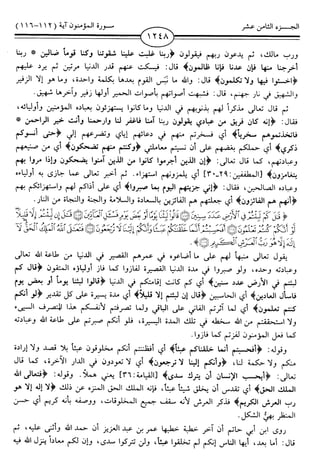 الجـــزء الثامن عشر
١٢٤٨
سورة المؤمنون آية (١١٢-١١٦)
ورب مالك، ثم يدعون ربهم فيقولون ﴿ربنا غلبت علينا شقوتنا وكنا قوماً ضالين * ربنا
أخرجنا منها فإن عدنا فإنا ظالمون﴾ قال: فيسكت عنهم قدر الدنيا مرتين ثم يرد عليهم
﴿اخسئوا فيها ولا تكلمون﴾ قال: والله ما نبس القوم بعدها بكلمة واحدة، وما هو إلا الزفير
والشهيق في نار جهنم، قال: فشبهت أصواتهم بأصوات الحمير أولها زفير وآخرها شهيق.
ثم قال تعالى مذكراً لهم بذنوبهم في الدنيا وما كانوا يستهزئون بعباده المؤمنين وأوليائه،
فقال: ﴿إنه كان فريق من عبادي يقولون ربنا آمنا فاغفر لنا وارحمنا وأنت خير الراحمين *
فاتخذتموهم سخرياً﴾ أي فسخرتم منهم في دعائهم إياي وتضرعهم إلي ﴿حتى أنسوكم
ذكري﴾ أي حملكم بغضهم على أن نسيتم معاملتي ﴿وكنتم منهم تضحكون﴾ أي من صنيعهم
وعبادتهم، كما قال تعالى: ﴿إن الذين أجرموا كانوا من الذين آمنوا يضحكون وإذا مروا بهم
يتغامزون﴾ [المطففين: ٢٩-٣٠] أي يلمزونهم استهزاء. ثم أخبر تعالى عما جازى به أولياءه
وعباده الصالحين، فقال: ﴿إني جزيتهم اليوم بما صبروا﴾ أي على أذاكم لهم واستهزائكم بهم
﴿أنهم هم الفائزون﴾ أي جعلتهم هم الفائزين بالسعادة والسلامة والجنة والنجاة من النار.
يقول تعالى منبهاً لهم على ما أضاعوه في عمرهم القصير في الدنيا من طاعة الله تعالى
وعبادته وحده، ولو صبروا في مدة الدنيا القصيرة لفازوا كما فاز أولياؤه المتقون ﴿قال كم
لبثتم في الأرض عدد سنين﴾ أي كم كانت إقامتكم في الدنيا ﴿قالوا لبثنا يوماً أو بعض يوم
فاسأل العادين﴾ أي الحاسبين ﴿قال إن لبثتم إلا قليلاً﴾ أي مدة يسيرة على كل تقدير ﴿لو أنكم
كنتم تعلمون﴾ أي لما آثرتم الفاني على الباقي ولما تصرفتم لأنفسكم هذا التصرف السيىء
ولا استحققتم من الله سخطه في تلك المدة اليسيرة، فلو أنكم صبرتم على طاعة الله وعبادته
كما فعل المؤمنون لفزتم كما فازوا.
وقوله: ﴿أفحسبتم أنما خلقناكم عبثاً﴾ أي أفظننتم أنكم مخلوقون عبثاً بلا قصد ولا إرادة
منكم ولا حكمة لنا، ﴿وأنكم إلينا لا ترجعون﴾ أي لا تعودون في الدار الآخرة، كما قال
تعالى: ﴿أيحسب الإنسان أن يترك سدى﴾ [القيامة: ٣٦] يعني هملاً. وقوله: ﴿فتعالى الله
الملك الحق﴾ أي تقدس أن يخلق شيئاً عبثاً، فإنه الملك الحق المنزه عن ذلك ﴿لا إله إلا هو
رب العرش الكريم﴾ فذكر العرش لأنه سقف جميع المخلوقات، ووصفه بأنه كريم أي حسن
المنظر بهيّ الشكل.
روى ابن أبي حاتم أن آخر خطبة خطبها عمر بن عبد العزيز أن حمد الله وأثنى عليه، ثم
قال: أما بعد، أيها الناس إنكم لم تخلقوا عبثاً، ولن تتركوا سدى، وإن لكم معاداً ينزل الله فيه